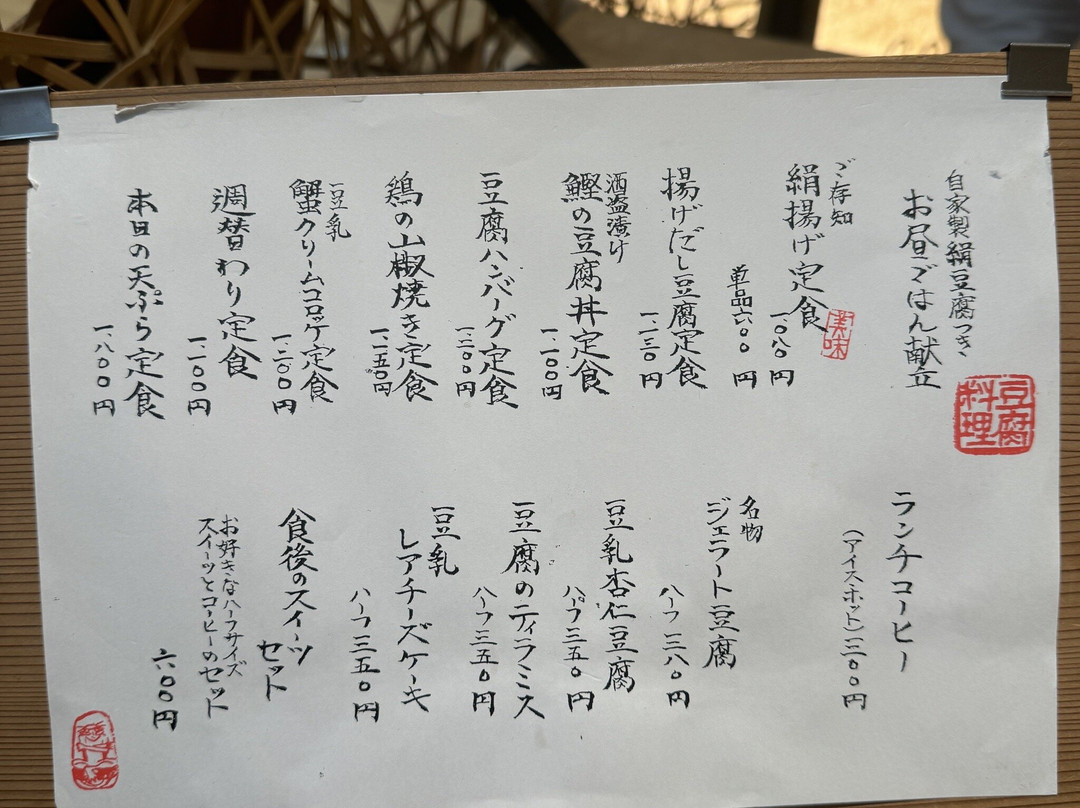 自家製絹豆腐つき
お昼ごはん献立
豆腐料理
ご存知
絹揚げ定食
美味
一〇八〇円
単品六〇〇円
揚げだし豆腐定食
一、一三〇円
酒盗漬け
鰹の豆腐丼定食
一、一〇〇円
豆腐ハンバーグ定食
一、二〇〇円
鶏の山椒焼き定食
一、一五〇円
豆乳
蟹クリームコロッケ定食
一、二〇〇円
週替わり定食
一、一〇〇円
本日の天ぷら定食
一、八〇〇円
ランチコーヒー
(アイス・ホット)三〇〇円
名物
ジェラート豆腐
ハーフ三八〇円
豆乳杏仁豆腐
ハーフ三五〇円
豆腐のティラミス
ハーフ三五〇円
豆乳
レアチーズケーキ
ハーフ三五〇円
食後のスイーツ
セット
お好きなハーフサイズ
スイーツとコーヒーのセット
六〇〇円